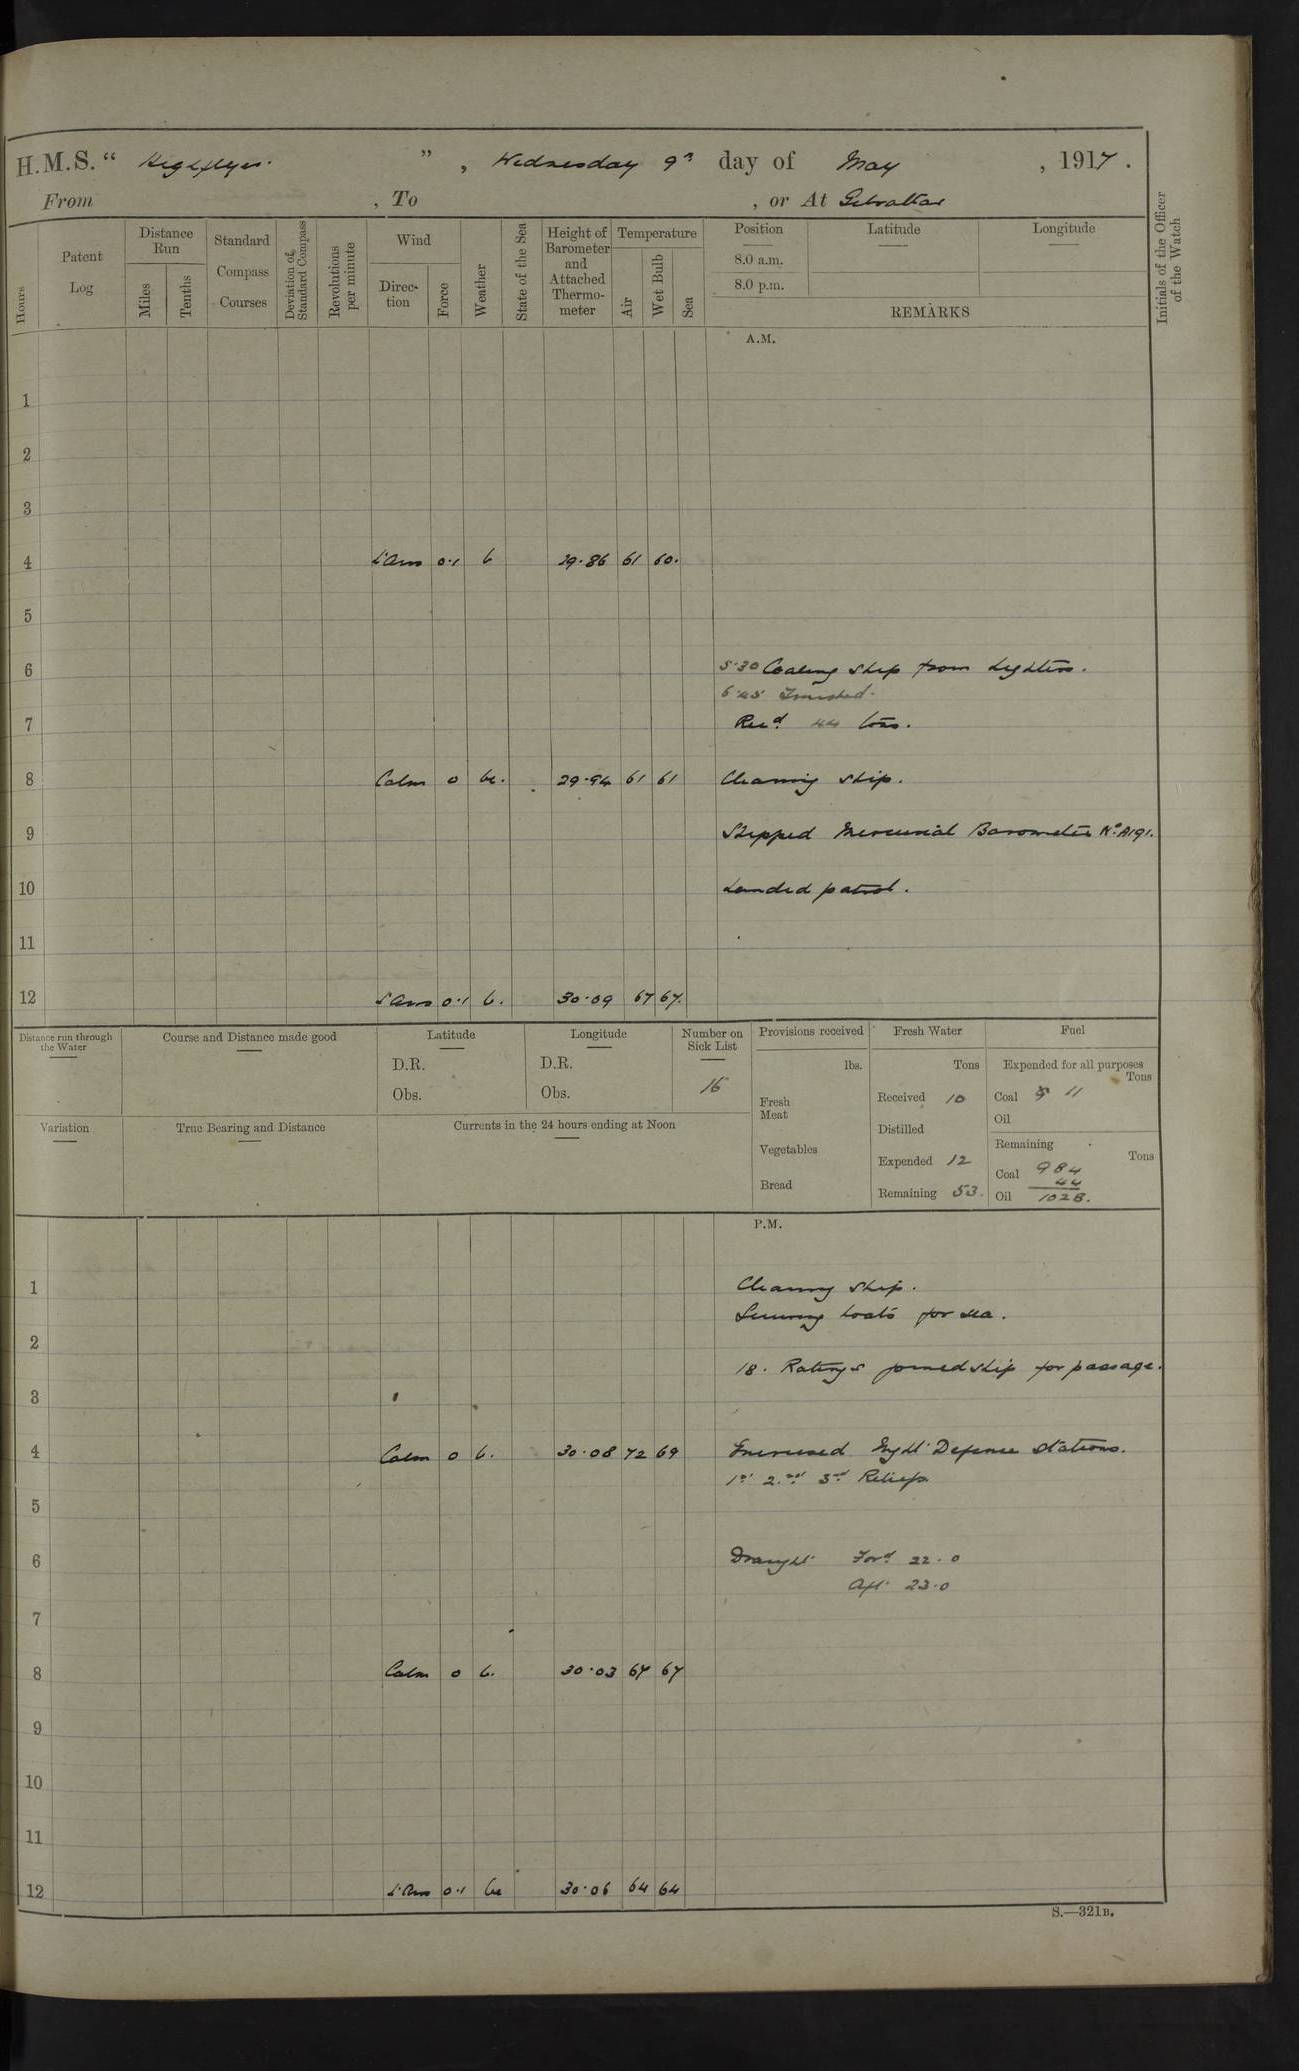 H.M.S. “ Highflyer. ” , Wednesday 9th day of May , 1917 .
From , To , or At Gibraltar
Hours
Patent Log
Distance Run
Miles
Tenths
Standard Compass Courses
Deviation of Standard Compass
Revolutions per minute
Wind
Direction
Force
Weather
State of the Sea
Height of Barometer and Attached Thermometer
Temperature
Air
Wet Bulb
Sea
Position
8.0 a.m.
8.0 p.m.
Latitude
Longitude
REMARKS
Initials of the Officer of the Watch
A.M.
1
2
3
4 L'Airs 0·1 b 29·86 61 60.
5
6 5·30 Coaling ship from lighters.
6·45 Finished.
7 Recd. 44 tons.
8 Calm 0 bc. 29·94 61 61 Cleaning ship.
9 Shipped Mercurial Barometer No. A191.
10 Landed patrol.
11
12 L'Airs 0·1 b. 30·09 67 67.
Distance run through the Water
Course and Distance made good
Latitude
D.R.
Obs.
Longitude
D.R.
Obs.
Number on Sick List
16
Provisions received
lbs.
Fresh Meat
Vegetables
Bread
Fresh Water
Tons
Received 10
Distilled
Expended 12
Remaining 53.
Fuel
Expended for all purposes
Tons
Coal 11
Oil
Remaining
Tons
Coal 984
44
Oil 1028.
Variation
True Bearing and Distance
Currents in the 24 hours ending at Noon
P.M.
1 Cleaning ship.
Securing boats for sea.
2
18. Ratings joined ship for passage.
3
4 Calm 0 b. 30·08 72 69 Exercised Night Defence Stations.
1st 2nd 3rd Reliefs
5
6 Draught Ford 22·0
Aft. 23·0
7
8 Calm 0 b. 30·03 67 67
9
10
11
12 L'Airs 0·1 bc 30·06 64 64
S.—321B.